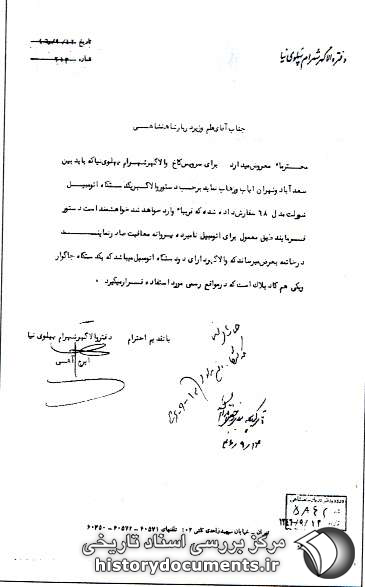 دفتر والاگهر شهرام پهلوی نیا
تاریخ
شماره
جناب آقای علم وزیر دربار شاهنشاهی
محترماً معروض میدارد برای سرویس کاخ والاگهر شهرام پهلوی نیا که باید بین
سعدآباد و تهران ایاب و ذهاب نماید بر حسب دستور والاگهر یک دستگاه اتومبیل
شورلت مدل ۶۸ سفارش داده شده که قریباً وارد خواهد شد خواهشمند است دستور
فرمایند طبق معمول برای اتومبیل نامبرده پروانه معافیت صادر نمایند
در خاتمه بعرض میرساند که والاگهر دارای دو دستگاه اتومبیل میباشد که یکدستگاه جاگوار
ویکی هم کادیلاک است که در مواقع رسمی مورد استفاده قرار میگیرد.
با تقدیم احترام
دفتر والاگهر شهرام پهلوی نیا
ایرج
۴۶/۹/۱۴
۵۸۶۲
۱۳۴۶/۹/۱۲
تهران - خیابان سپهبد زاهدی تلفنهای ۶۰۵۷۱ - ۶۰۵۷۲ - ۶۰۲۵۰
مرکز بررسی اسناد تاریخی
historydocuments.ir